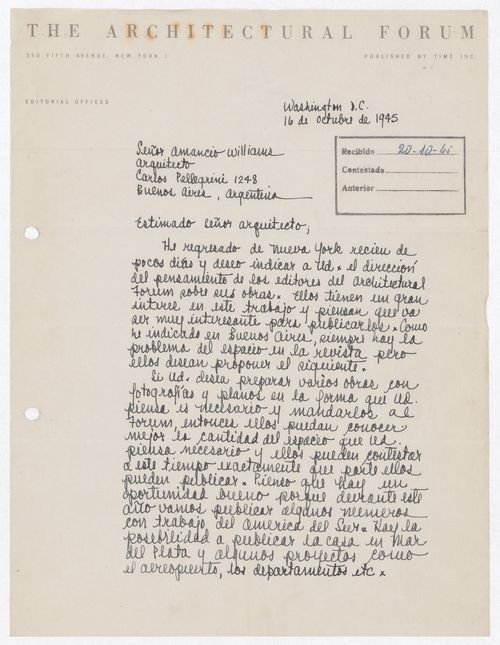 THE ARCHITECTURAL FORUM
350 FIFTH AVENUE, NEW YORK 1
PUBLISHED BY TIME INC.
EDITORIAL OFFICES
Washington D.C.
16 de octubre de 1945
Recibido 20-10-45
Contestado
Anterior
Señor Amancio Williams
Arquitecto
Carlos Pellegrini 1248
Buenos Aires, Argentina
Estimado señor arquitecto;
He regresado de Nueva York recien de
pocos dias y deseo indicar a Ud. el dirección
del pensamiento de los editores del Architectural
Forum sobre sus obras. Ellos tienen un gran
interes en este trabajo y piensan que va
ser muy interesante para publicarlos. Como
he indicado en Buenos Aires, siempre hay la
problema del espacio en la revista pero
ellos desean proponer el siguiente.
Si Ud. desia preparar varios obras con
fotografias y planos en la forma que Ud.
piensa is necesario y mandarlos al
Forum, entonces ellos puedan conocer
mejor la cantidad del espacio que Ud.
piensa necesario y ellos pueden contestar
a este tiempo exactamente que parte ellos
pueden publicar. Pienso que hay un
oportunidad bueno porque deurante este
año vamos publicar algunos numeros
con trabajo del America del Sur. Hay la
posibilidad a publicar la casa en Mar
del Plata y algunos proyectos como
el aeropuerto, los departamentos etc.